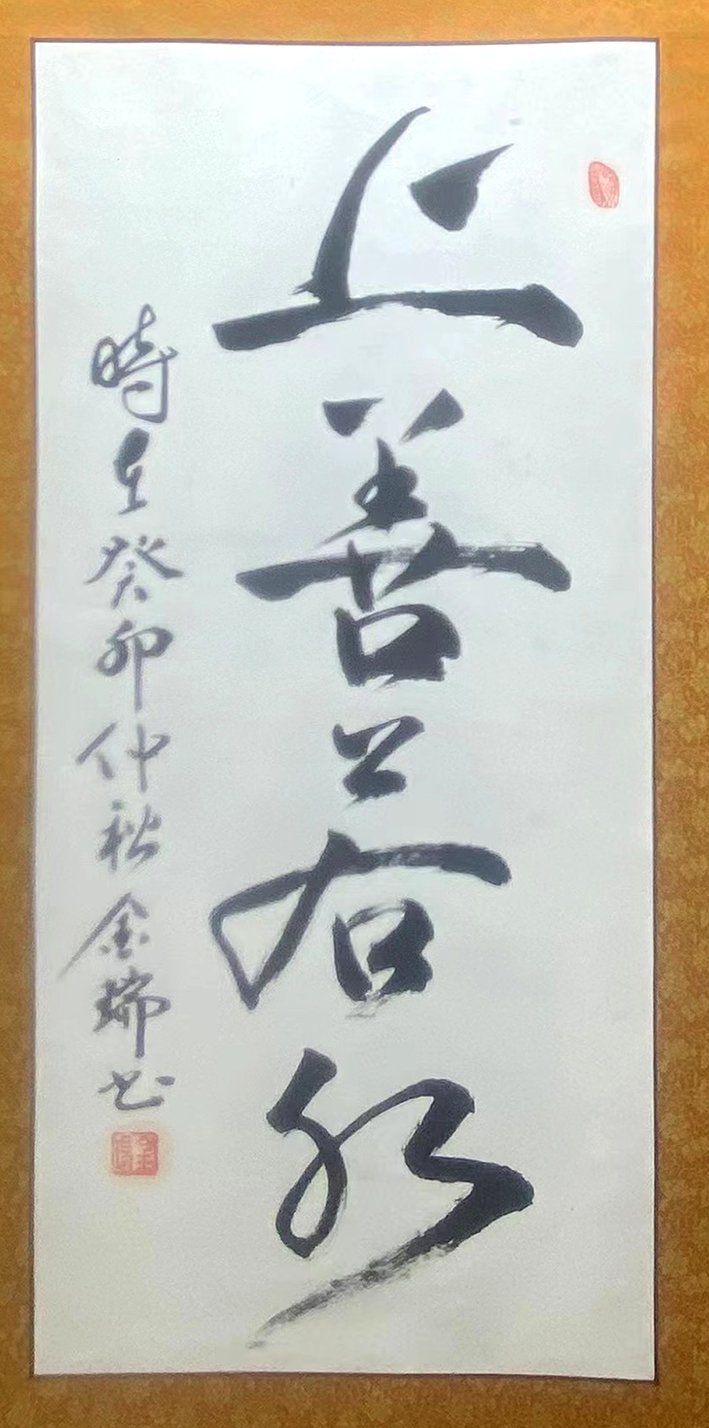 上善若水
時在癸卯仲秋金瑞书